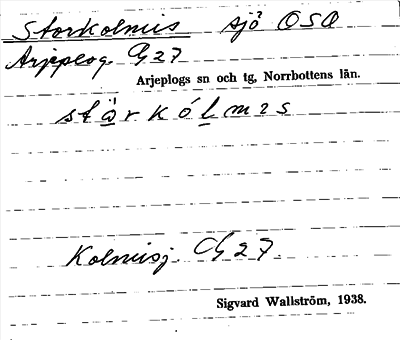 Storkolmis sjö OSO
Arjeplog. G 27
Arjeplogs sn och tg, Norrbottens län.
stårkólmıs
Kolmisj. G 27.
Sigvard Wallström, 1938.